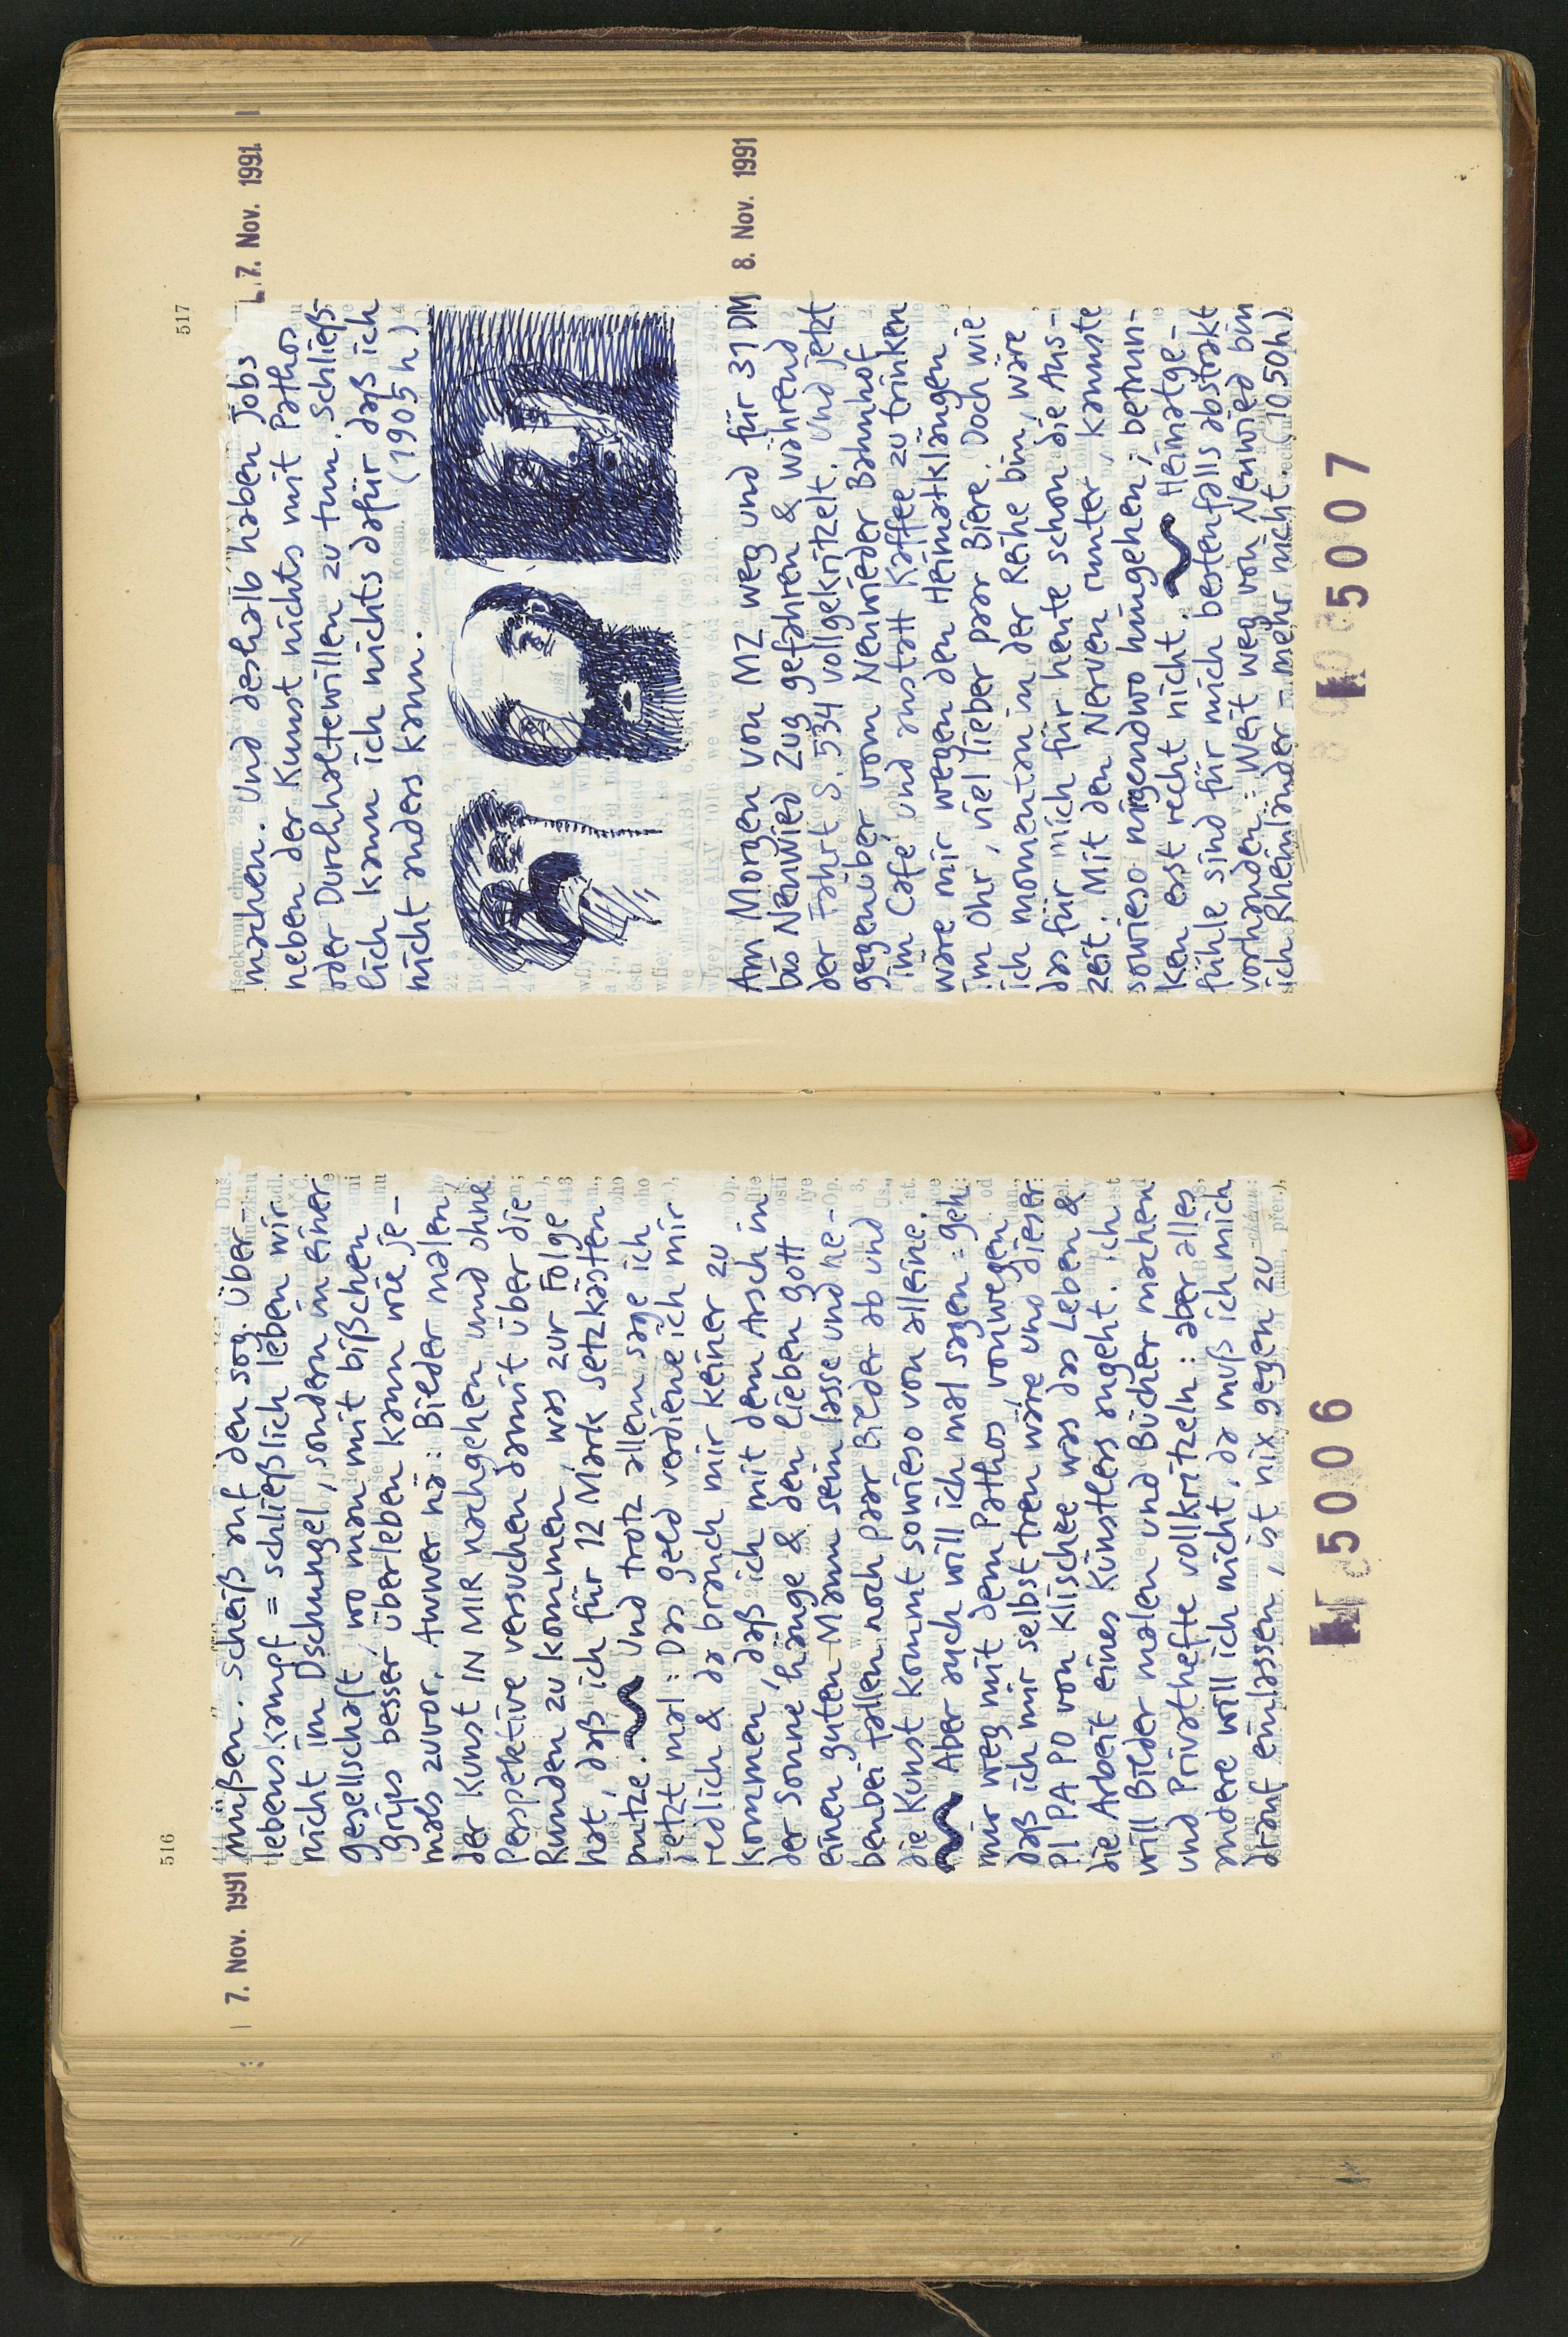 516
7. Nov. 1991
müßen. Scheiß auf den sog. Über-
lebenskampf = schließlich leben wir
nicht im Dschungel, sondern in einer
Gesellschaft, wo man mit bißchen
Grips besser überleben kann wie je-
mals zuvor. Awwer nä: Bilder malen,
der Kunst IN MIR nachgehen und ohne
Perspektive versuchen damit über die
Runden zu kommen, was zur Folge
hat, daß ich für 12 Mark Setzkästen
putze. Und trotz allem sage ich
jetzt mal: Das Geld verdiene ich mir
redlich & da brauch mir keiner zu
kommen, daß ich mit dem Arsch in
der Sonne hänge & den lieben Gott
einen guten Mann sein lasse und ne-
benbei fallen noch paar Bilder ab und
die Kunst kommt sowieso von alleine.
Aber auch will ich mal sagen = geh
mir weg mit dem Pathos, vonwegen
daß ich mir selbst treu wäre und dieser
PI PA PO von Klischee was das Leben &
die Arbeit eines Künstlers angeht. Ich
will Bilder malen und Bücher machen
und Privathefte vollkritzeln: aber alles
andere will ich nicht, da muß ich mich
drauf einlassen, ist nix gegen zu
5006
517
7. Nov. 1991
machen. Und deshalb haben Jobs
neben der Kunst nichts mit Pathos
oder Durchhaltewillen zu tun. Schließ-
lich kann ich nichts dafür daß ich
nicht anders kann. (1905 h)
8. Nov. 1991
Am Morgen von MZ weg und für 31 DM
bis Neuwied Zug gefahren & während
der Fahrt S. 534 vollgekritzelt. Und jetzt
gegenüber vom Neuwieder Bahnhof
im Café und anstatt Kaffee zu trinken
wäre mir wegen den Heimatklängen
im Ohr, viel lieber paar Biere. Doch wie
ich momentan in der Reihe bin, wäre
das für mich für heute schon die Aus-
zeit. Mit den Nerven runter, kannste
sowieso nirgendwo hingehen; betrun-
ken erst recht nicht. Heimatge-
fühle sind für mich bestenfalls abstrakt
vorhanden: Weit weg von Neuwied bin
ich Rheinländer - mehr nicht. (1050h)
5007